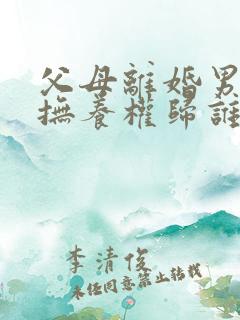 父母離婚男
撫養權歸誰
李清俊
未经同意禁止转载